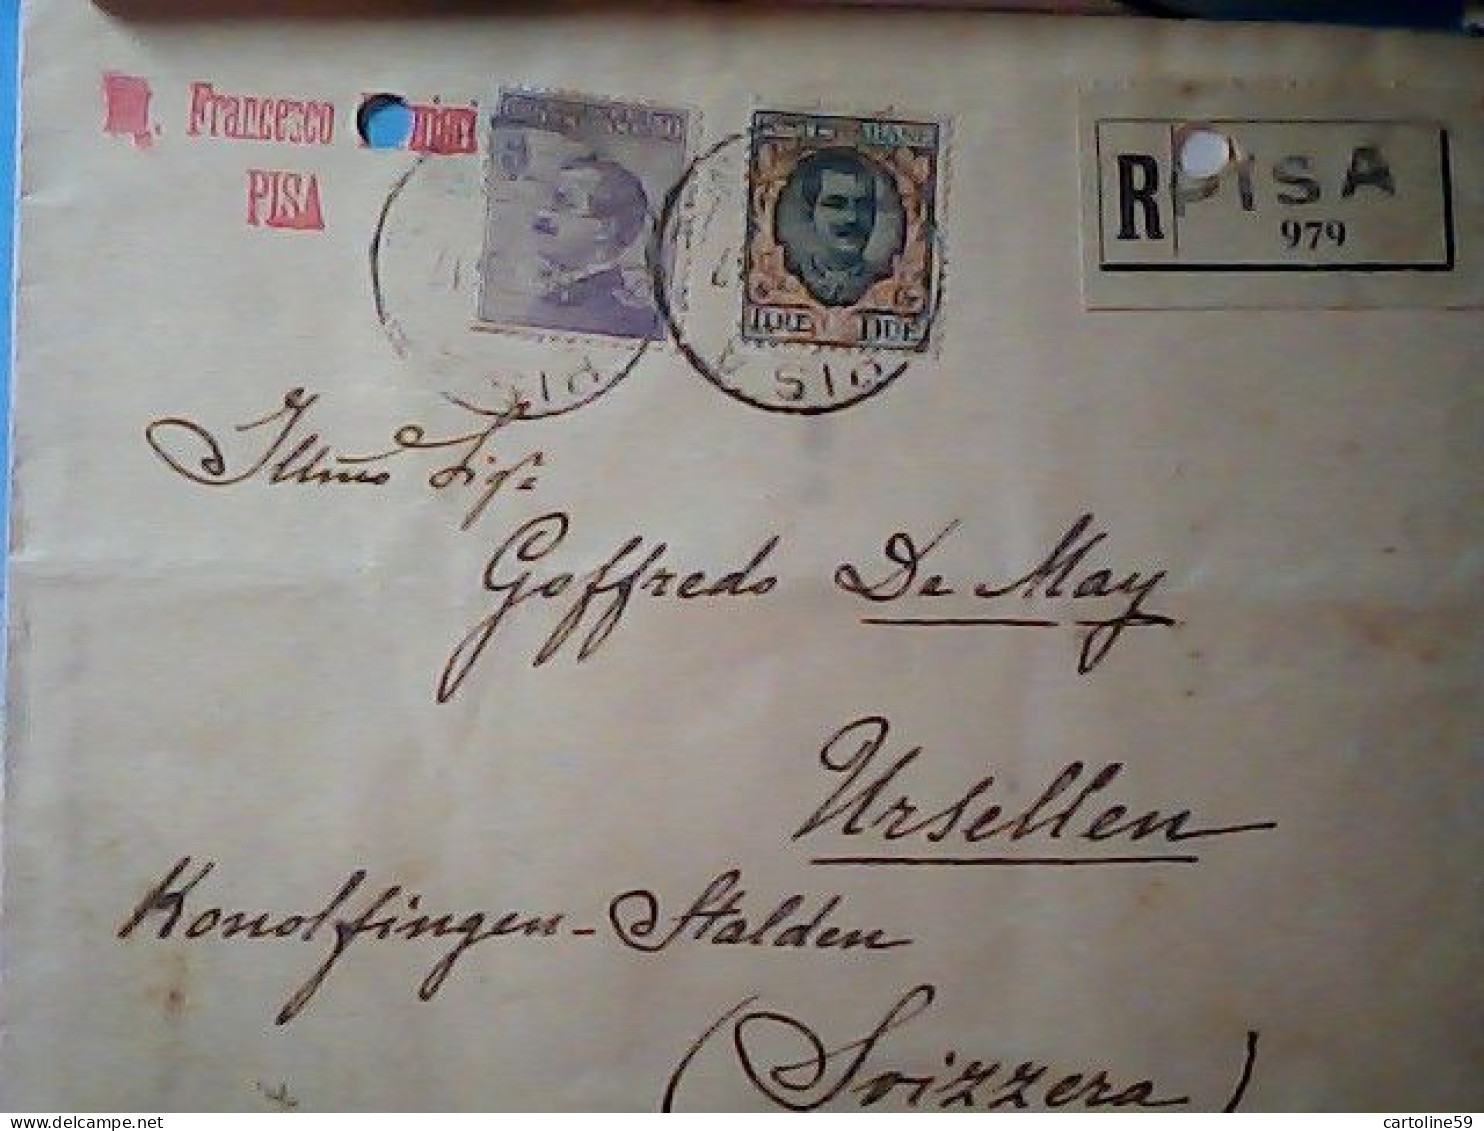 Francesco
PISA
R PISA
979
LIRE LIRE
PISA
PISA
Illmo Sigr
Goffredo De May
Ursellen
Konolfingen-Stalden
(Svizzera)
cartoline59